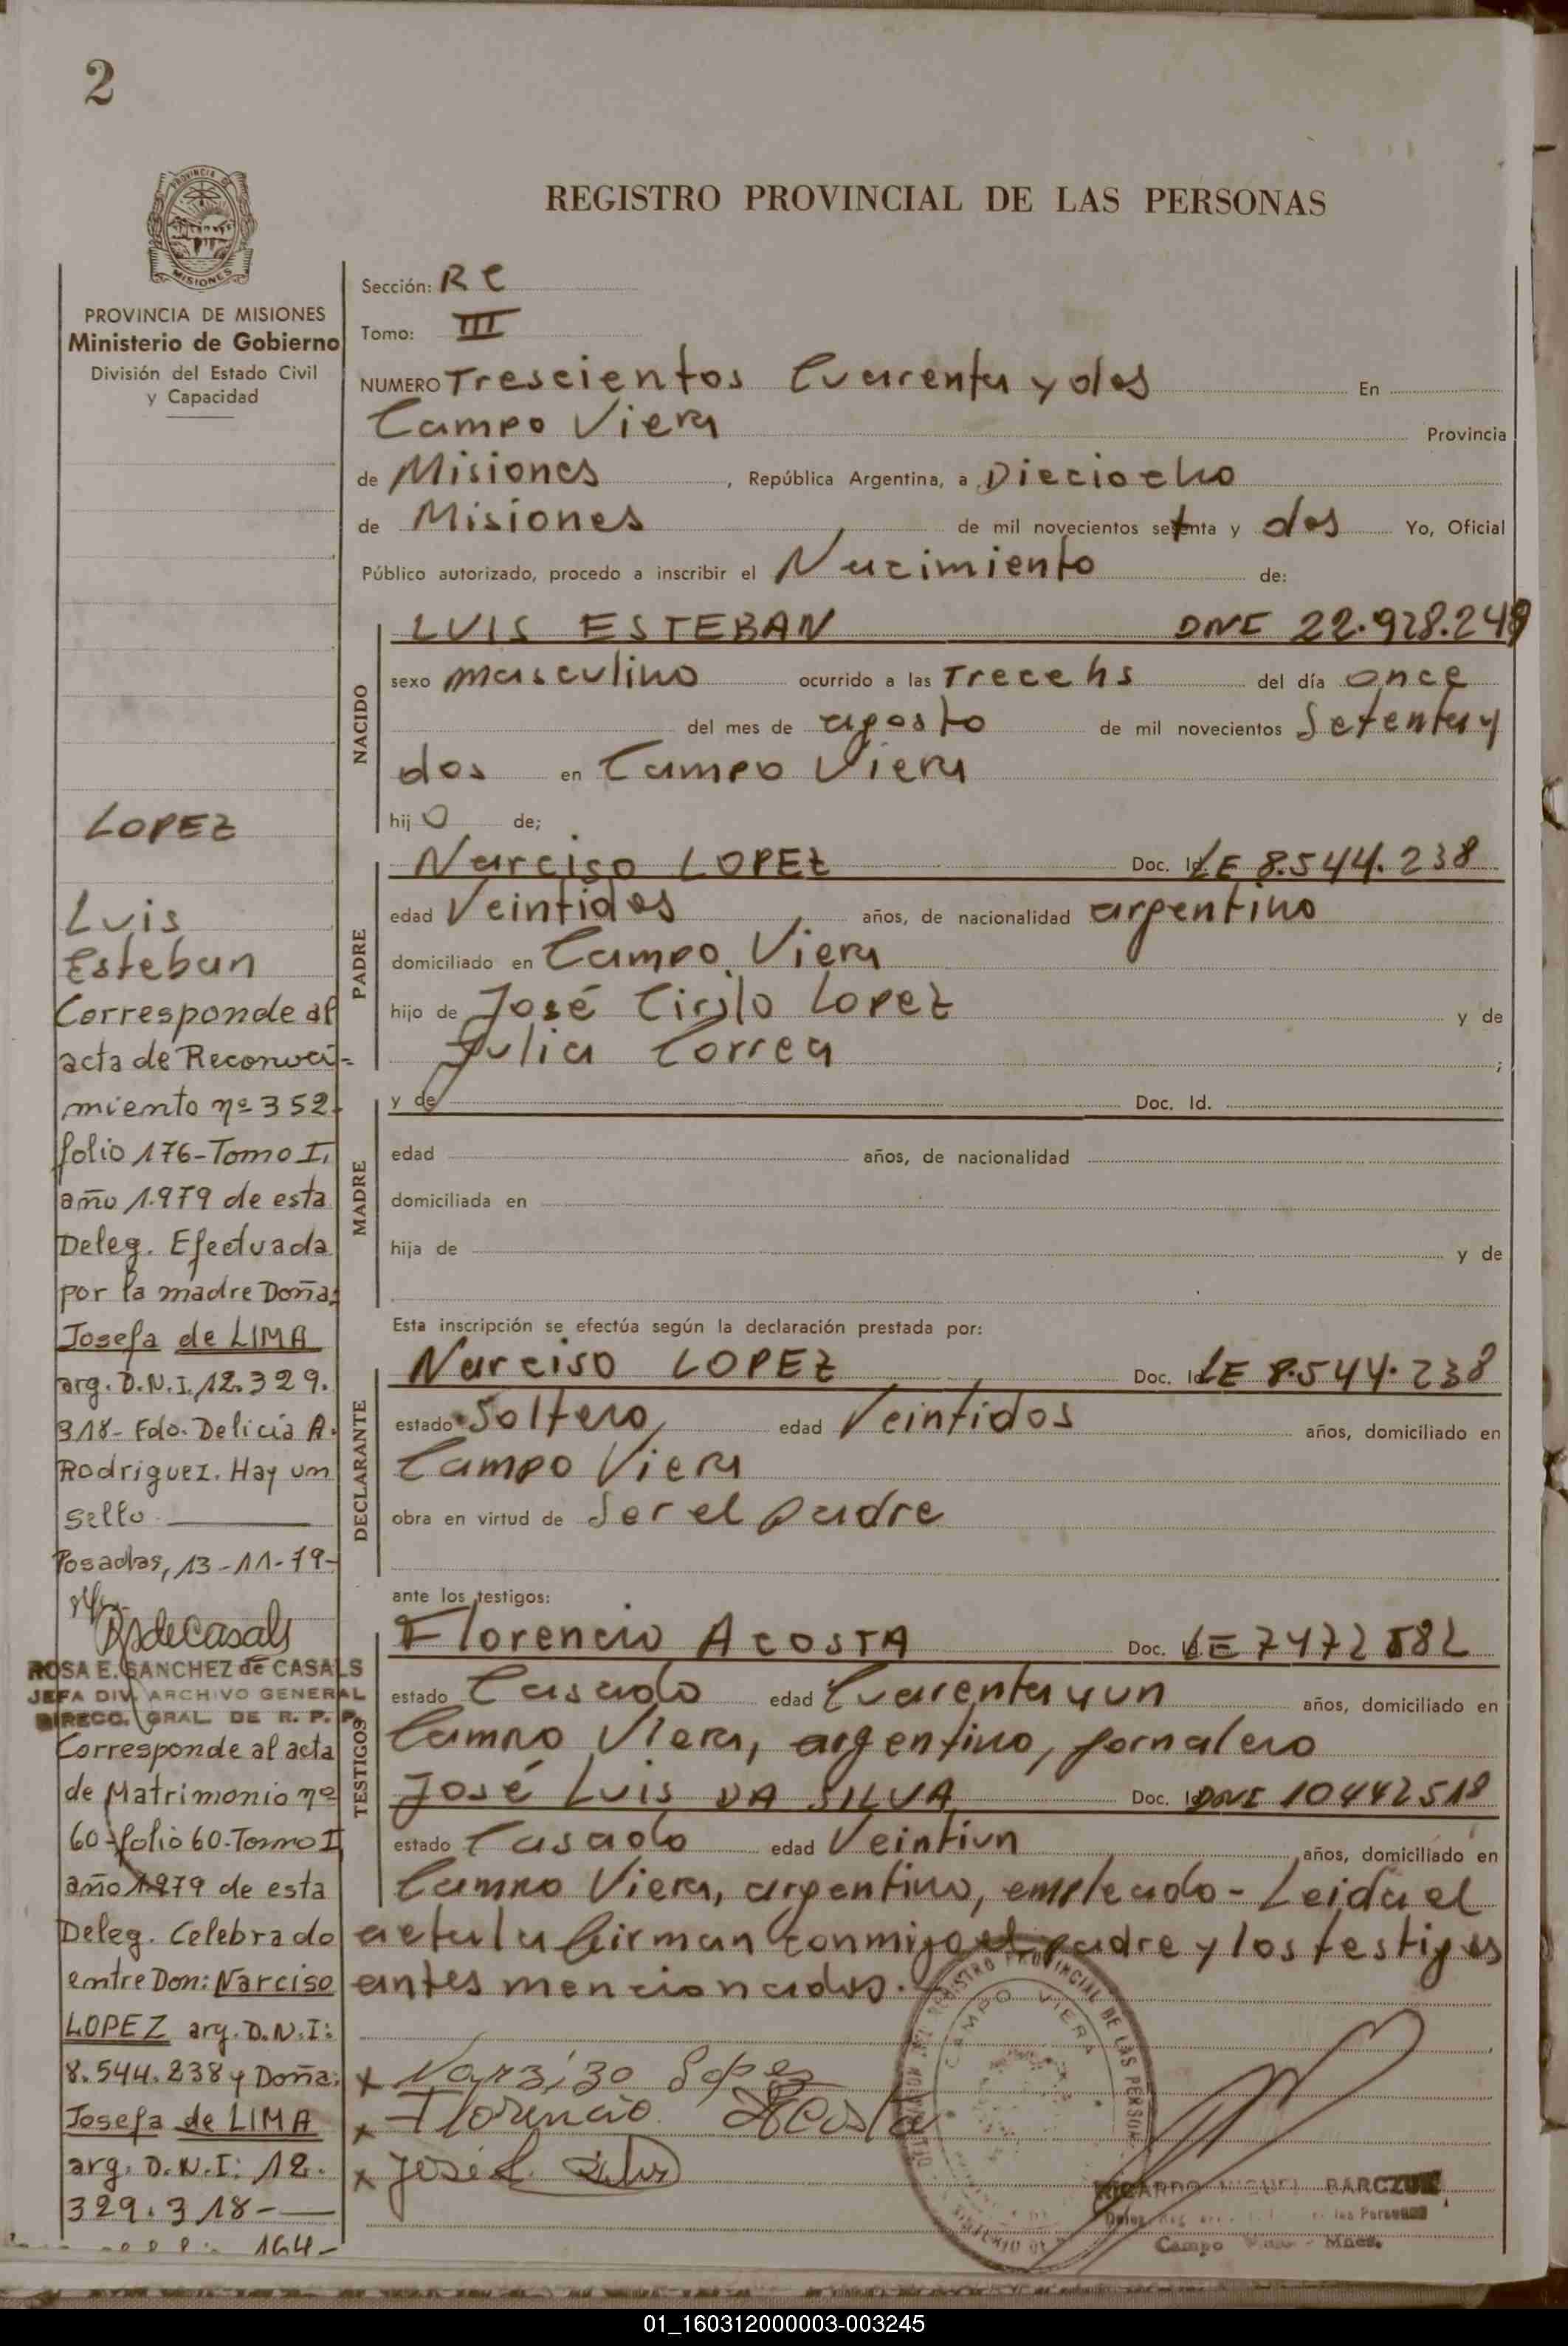 2
PROVINCIA DE
MISIONES
REGISTRO PROVINCIAL DE LAS PERSONAS
PROVINCIA DE MISIONES
Ministerio de Gobierno
División del Estado Civil
y Capacidad
LOPEZ
Luis
Esteban
Corresponde al
acta de Reconoci-
miento nº 352-
folio 176-Tomo I,
año 1.979 de esta
Deleg. Efectuada
por la madre Doña:
Josefa de LIMA
arg. D.N.I. 12.329.
318- Fdo. Delicia A.
Rodriguez. Hay un
sello
Posadas, 13-11-79-
RSdeCasals
ROSA E. SANCHEZ de CASALS
JEFA DIV. ARCHIVO GENERAL
DIRECC. GRAL. DE R. P. P.
Corresponde al acta
de Matrimonio nº
60-folio 60-Tomo I
año 1979 de esta
Deleg. Celebrado
entre Don: Narciso
LOPEZ arg. D.N.I:
8.544.238 y Doña:
Josefa de LIMA
arg. D.N.I: 12.
329.318-
164-
Sección: RC
Tomo: III
NUMERO Trescientos Cuarenta y dos En
Campo Viera Provincia
de Misiones, República Argentina, a Dieciocho
de Misiones de mil novecientos setenta y dos Yo, Oficial
Público autorizado, procedo a inscribir el Nacimiento de:
NACIDO
LUIS ESTEBAN DNI 22.928.249
sexo masculino ocurrido a las Trece hs del día once
del mes de agosto de mil novecientos Setenta y
dos en Campo Viera
hijo de;
PADRE
Narciso LOPEZ Doc. Id. LE 8.544.238
edad Veintidos años, de nacionalidad argentino
domiciliado en Campo Viera
hijo de José Cirilo Lopez y de
Julia Correa ;
MADRE
y de Doc. Id.
edad años, de nacionalidad
domiciliada en
hija de y de
Esta inscripción se efectúa según la declaración prestada por:
DECLARANTE
Narciso LOPEZ Doc. Id. LE 8.544.238
estado Soltero, edad Veintidos años, domiciliado en
Campo Viera
obra en virtud de Ser el padre
ante los testigos:
TESTIGOS
Florencio ACOSTA Doc. Id. LE 7472882
estado Casado edad Cuarenta y un años, domiciliado en
Campo Viera, argentino, jornalero
José Luis DA SILVA Doc. Id. DNI 10442518
estado Casado edad Veintiun años, domiciliado en
Campo Viera, argentino, empleado - Leida el
acta la firman conmigo el padre y los testigos
antes mencionados.
x Narzizo Lopez
x Florencio Acosta
x José L. Silva
REGISTRO PROVINCIAL DE LAS PERSONAS
CAMPO VIERA
RICARDO MIGUEL BARCZUK
Campo Viera - Mnes.
01_160312000003-003245